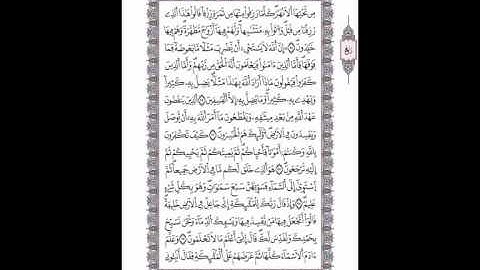 مِن تَحْتِهَا الْأَنْهَٰرُ كُلَّمَا رُزِقُوا مِنْهَا مِن ثَمَرَةٍ رِّزْقًا قَالُوا هَٰذَا الَّذِي
رُزِقْنَا مِن قَبْلُ وَأُتُوا بِهِ مُتَشَٰبِهًا وَلَهُمْ فِيهَا أَزْوَٰجٌ مُّطَهَّرَةٌ وَهُمْ فِيهَا
خَٰلِدُونَ إِنَّ اللَّهَ لَا يَسْتَحْيِي أَن يَضْرِبَ مَثَلًا مَّا بَعُوضَةً فَمَا
فَوْقَهَا فَأَمَّا الَّذِينَ ءَامَنُوا فَيَعْلَمُونَ أَنَّهُ الْحَقُّ مِن رَّبِّهِمْ وَأَمَّا الَّذِينَ
كَفَرُوا فَيَقُولُونَ مَاذَا أَرَادَ اللَّهُ بِهَٰذَا مَثَلًا يُضِلُّ بِهِ كَثِيرًا
وَيَهْدِي بِهِ كَثِيرًا وَمَا يُضِلُّ بِهِ إِلَّا الْفَٰسِقِينَ الَّذِينَ يَنقُضُونَ
عَهْدَ اللَّهِ مِن بَعْدِ مِيثَٰقِهِ وَيَقْطَعُونَ مَا أَمَرَ اللَّهُ بِهِ أَن يُوصَلَ
وَيُفْسِدُونَ فِي الْأَرْضِ أُولَٰئِكَ هُمُ الْخَٰسِرُونَ كَيْفَ تَكْفُرُونَ
بِاللَّهِ وَكُنتُمْ أَمْوَٰتًا فَأَحْيَٰكُمْ ثُمَّ يُمِيتُكُمْ ثُمَّ يُحْيِيكُمْ ثُمَّ
إِلَيْهِ تُرْجَعُونَ هُوَ الَّذِي خَلَقَ لَكُم مَّا فِي الْأَرْضِ جَمِيعًا ثُمَّ
اسْتَوَىٰ إِلَى السَّمَاءِ فَسَوَّىٰهُنَّ سَبْعَ سَمَٰوَٰتٍ وَهُوَ بِكُلِّ شَيْءٍ
عَلِيمٌ وَإِذْ قَالَ رَبُّكَ لِلْمَلَٰئِكَةِ إِنِّي جَاعِلٌ فِي الْأَرْضِ خَلِيفَةً
قَالُوا أَتَجْعَلُ فِيهَا مَن يُفْسِدُ فِيهَا وَيَسْفِكُ الدِّمَاءَ وَنَحْنُ نُسَبِّحُ
بِحَمْدِكَ وَنُقَدِّسُ لَكَ قَالَ إِنِّي أَعْلَمُ مَا لَا تَعْلَمُونَ وَعَلَّمَ
ءَادَمَ الْأَسْمَاءَ كُلَّهَا ثُمَّ عَرَضَهُمْ عَلَى الْمَلَٰئِكَةِ فَقَالَ أَنبِئُونِي